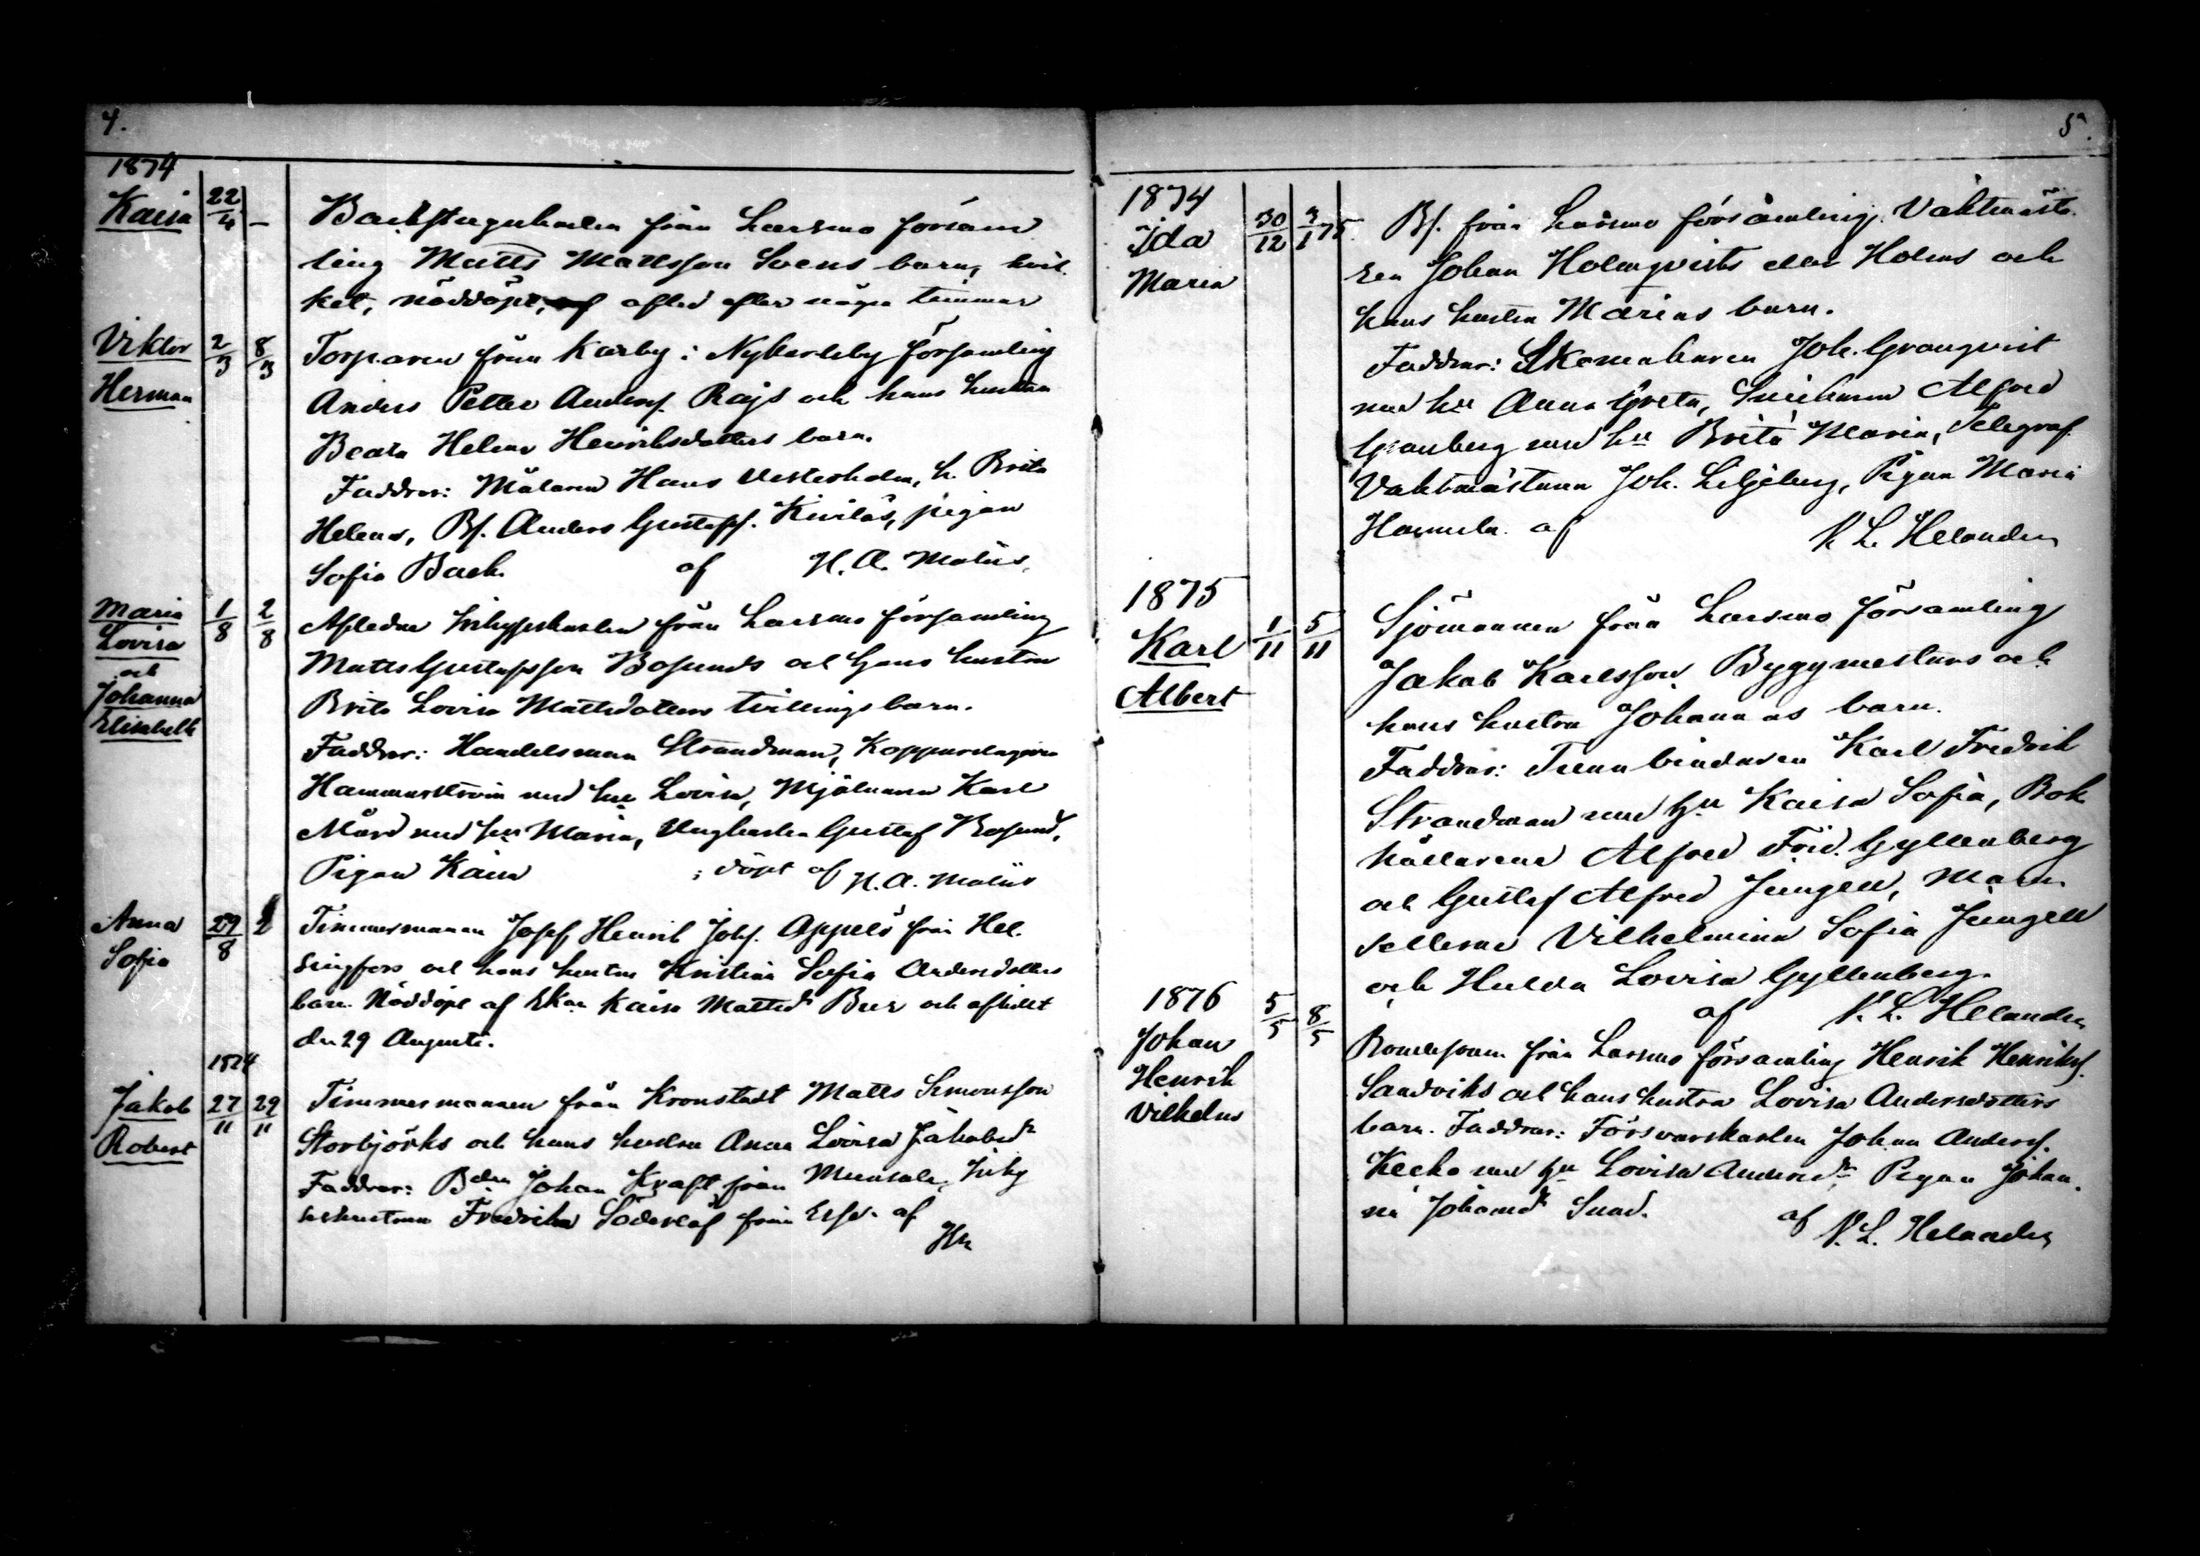 4.
1874
Kaisa 22/4 –
Backstugukarlen från Larsmo försam
ling Matts Mattsson Svens barn, hvil
ket, nöddöpt, afled efter några timmar
Viktor Herman 2/3 8/3
Torparen från Karby i Nykarleby församling
Anders Petter Anderss. Rajs och hans hustru
Beata Helena Henriksdotters barn.
Faddrar: Målaren Hans Vesterholm, h. Brita
Helena, Bs. Anders Gustafss. Kivilös, pigan
Sofia Back. af H. A. Malüs.
Maria Lovisa och Johanna Elisabeth 1/8 2/8
Afledne Inhyseskarlen från Larsmo församling
Matts Gustafsson Bosunds och hans hustru
Brita Lovisa Mattsdotters tvillingsbarn.
Faddrar: Handelsman Strandman, Kopparslagaren
Hammarström med hu Lovisa, Mjölnaren Karl
Mård med hu Maria, Ungkarlen Gustaf Bosund,
Pigan Kaisa ; döpt af H. A. Malüs
Anna Sofia 29/8
Timmermannen Josef Henrik Johs. Appelö från Hel
singfors och hans hustru Kristina Sofia Andersdotters
barn. Nöddöpt af Eskan Kaisa Mattsdr Bur och aflidet
den 29 Augusti.
1874
Jakob Robert 27/11 29/11
Timmermannen från Kronstadt Matts Simonsson
Storbjörks och hans hustru Anna Lovisa Jakobsdr
Faddrar: Bden Johan Kraft från Munsala, Inhy
seshustrun Fredrika Söderlöf från Esse. af
5.
1874
Ida Maria 30/12 3/1 75.
Bs. från Larsmo församling. Vaktmästa
ren Johan Holmqvists eller Holms och
hans hustru Marias barn.
Faddrar: Skomakaren Joh. Granqvist
med hu Anna Greta, Snickaren Alfred
Granberg med hu Brita Maria, Telegraf
Vaktmästaren Joh. Liljeberg, Pigan Maria
Hannula. af N. L. Helander
1875
Karl Albert 1/11 5/11
Sjömannen från Larsmo församling
Jakob Karlsson Byggmästars och
hans hustru Johannas barn.
Faddrar: Tunnbindaren Karl Fredrik
Strandman med hu Kaisa Sofia, Bok
hållarene Alfred Frid. Gyllenberg
och Gustaf Alfred Jungell, Mam
sellerne Vilhelmina Sofia Jungell
och Hulda Lovisa Gyllenberg.
af N. L. Helander
1876
Johan Henrik Vilhelm 5/5 8/5
Bondesonen från Larsmo församling Henrik Henrikss.
Sandviks och hans hustru Lovisa Andersdotters
barn. Faddrar: Försvarskarlen Johan Anderss.
Kecko med hu Lovisa Andersdr Pigan Johan
na Johansdr Sund. af N. L. Helander